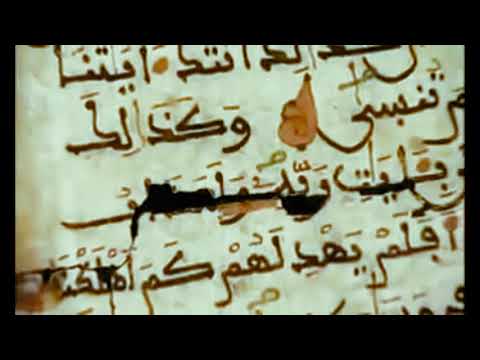 كذلك اتتك ايتنا
تنسى وكذلك
بايت ربه
افلم يهد لهم كم اهلكنا